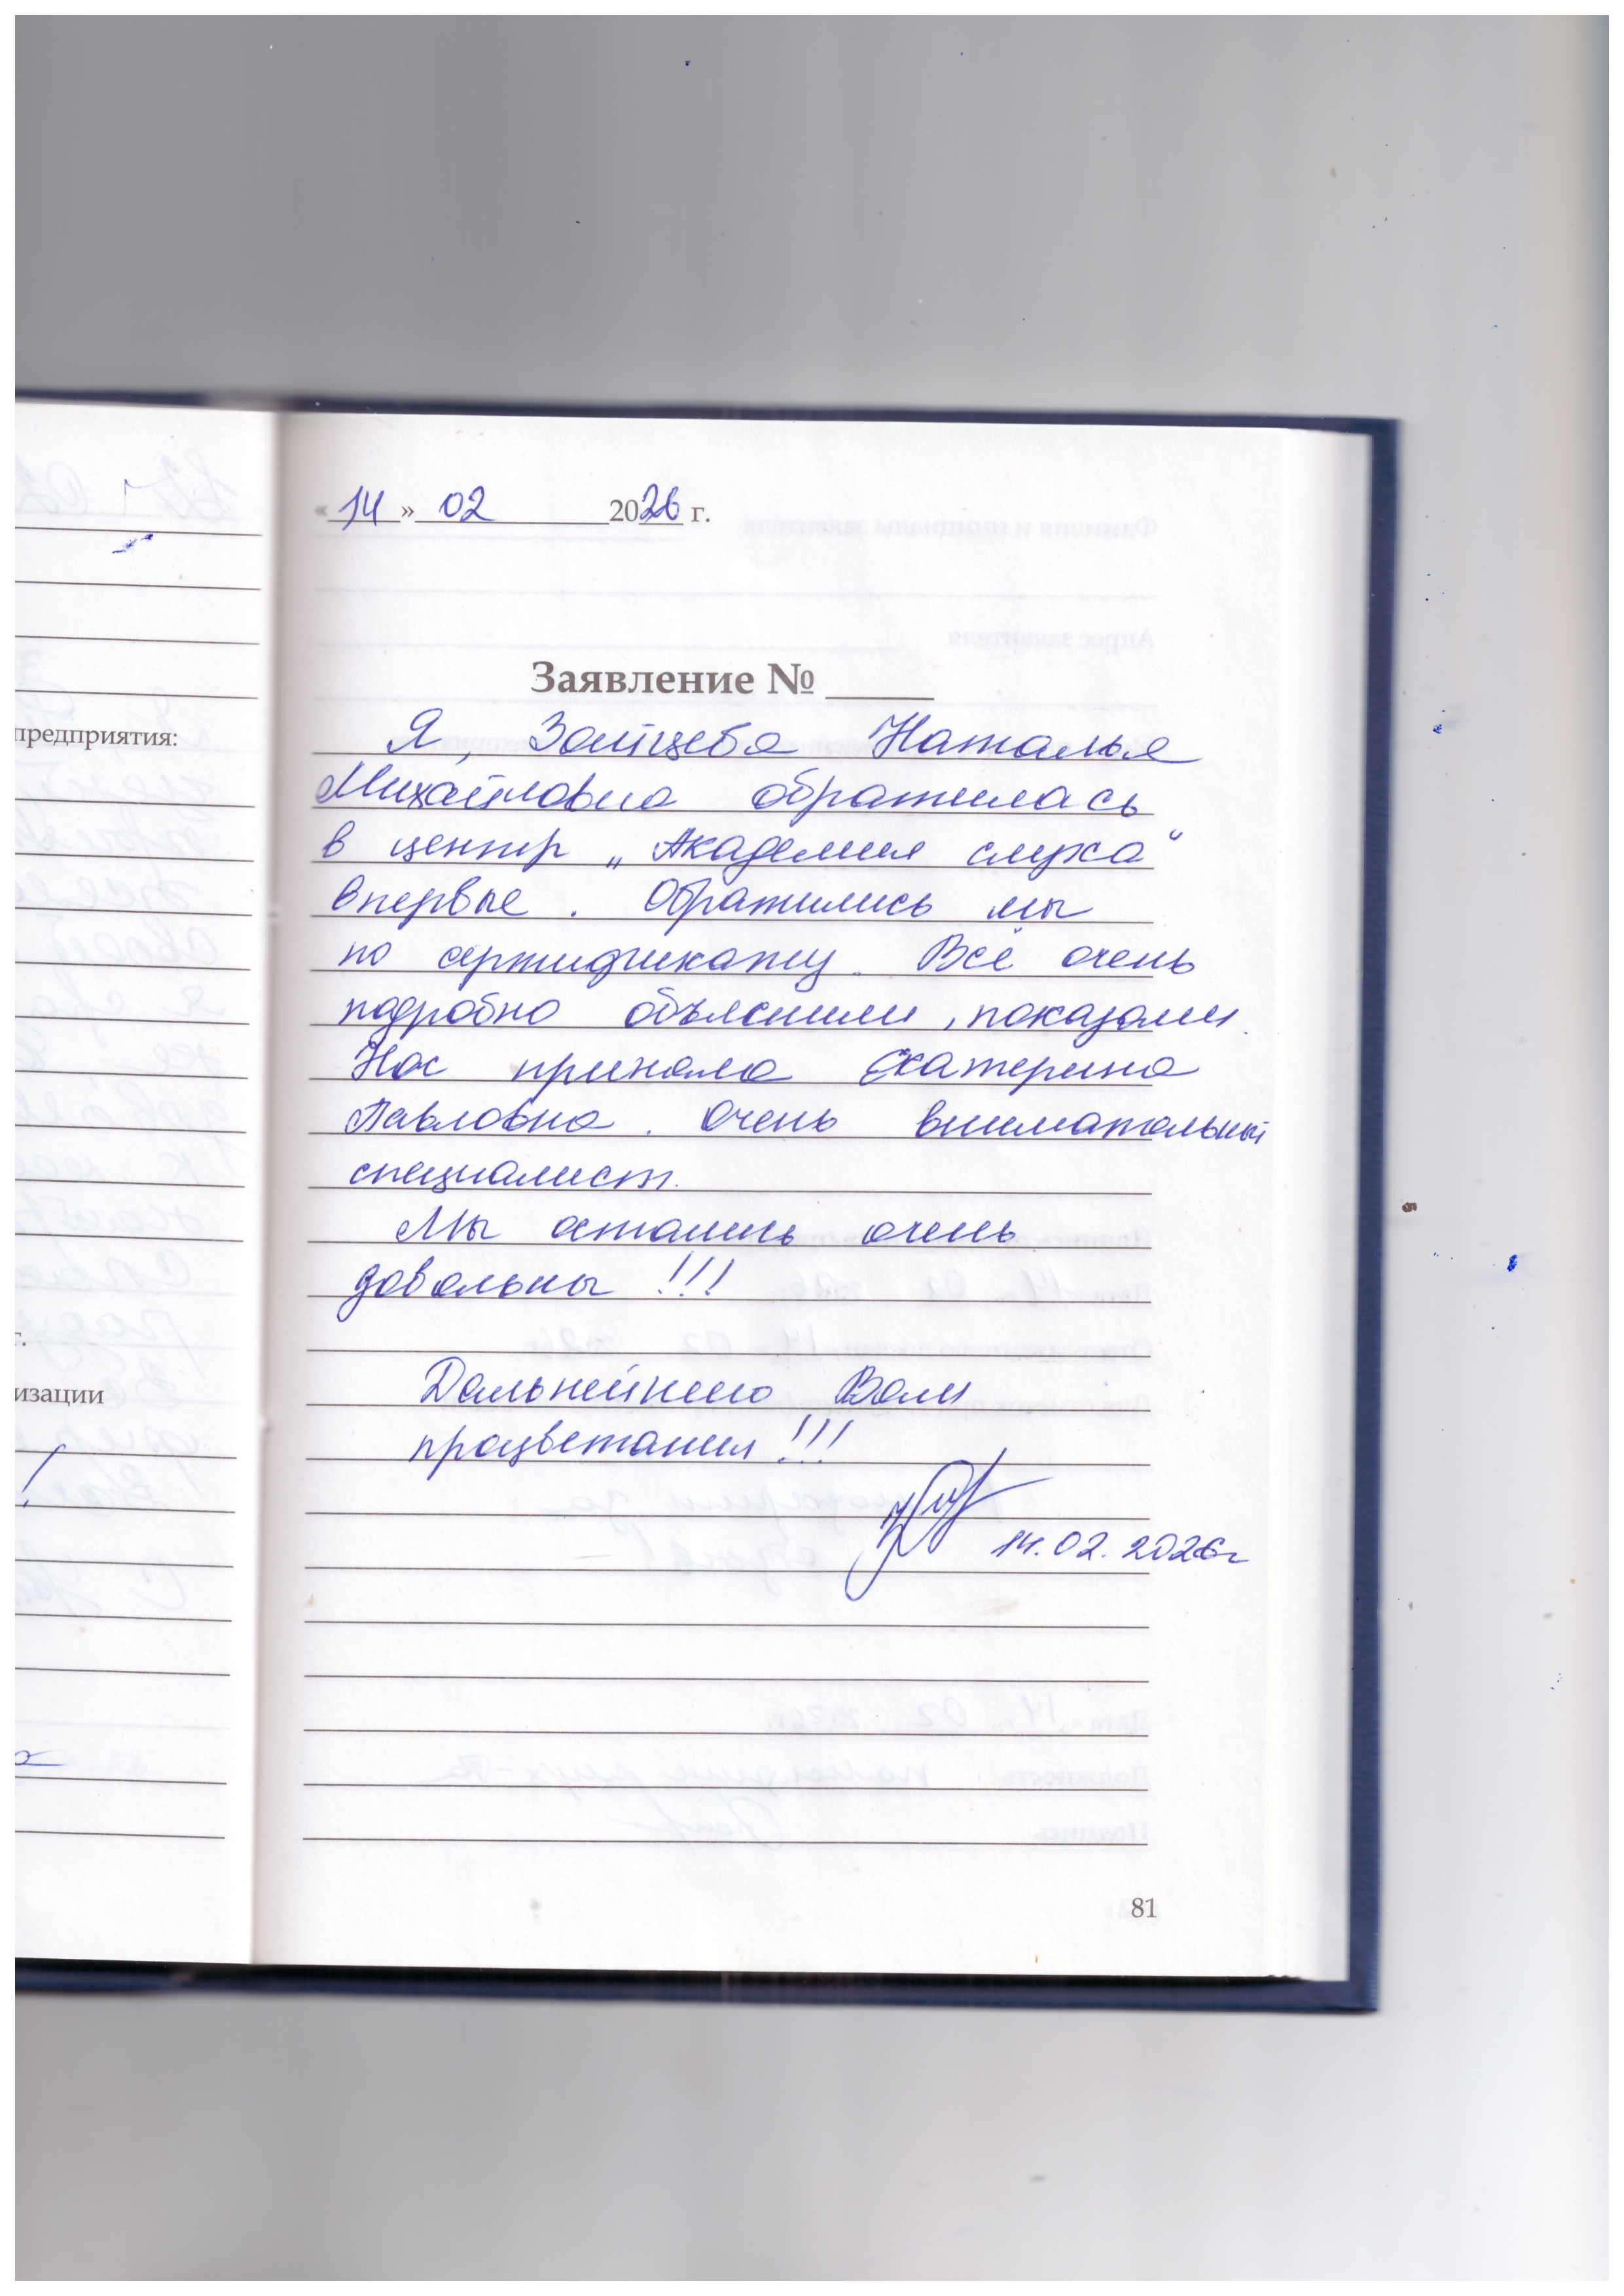 «14» 02 2026 г.
Заявление №
Я, Зайцева Наталья
Михайловна обратилась
в центр „Академия слуха“
впервые. Обратились мы
по сертификату. Всё очень
подробно объяснили, показали.
Нас приняла Екатерина
Павловна. Очень внимательный
специалист.
Мы остались очень
довольны!!!
Дальнейшего Вам
процветания!!!
14.02.2026г
81
предприятия:
г.
изации